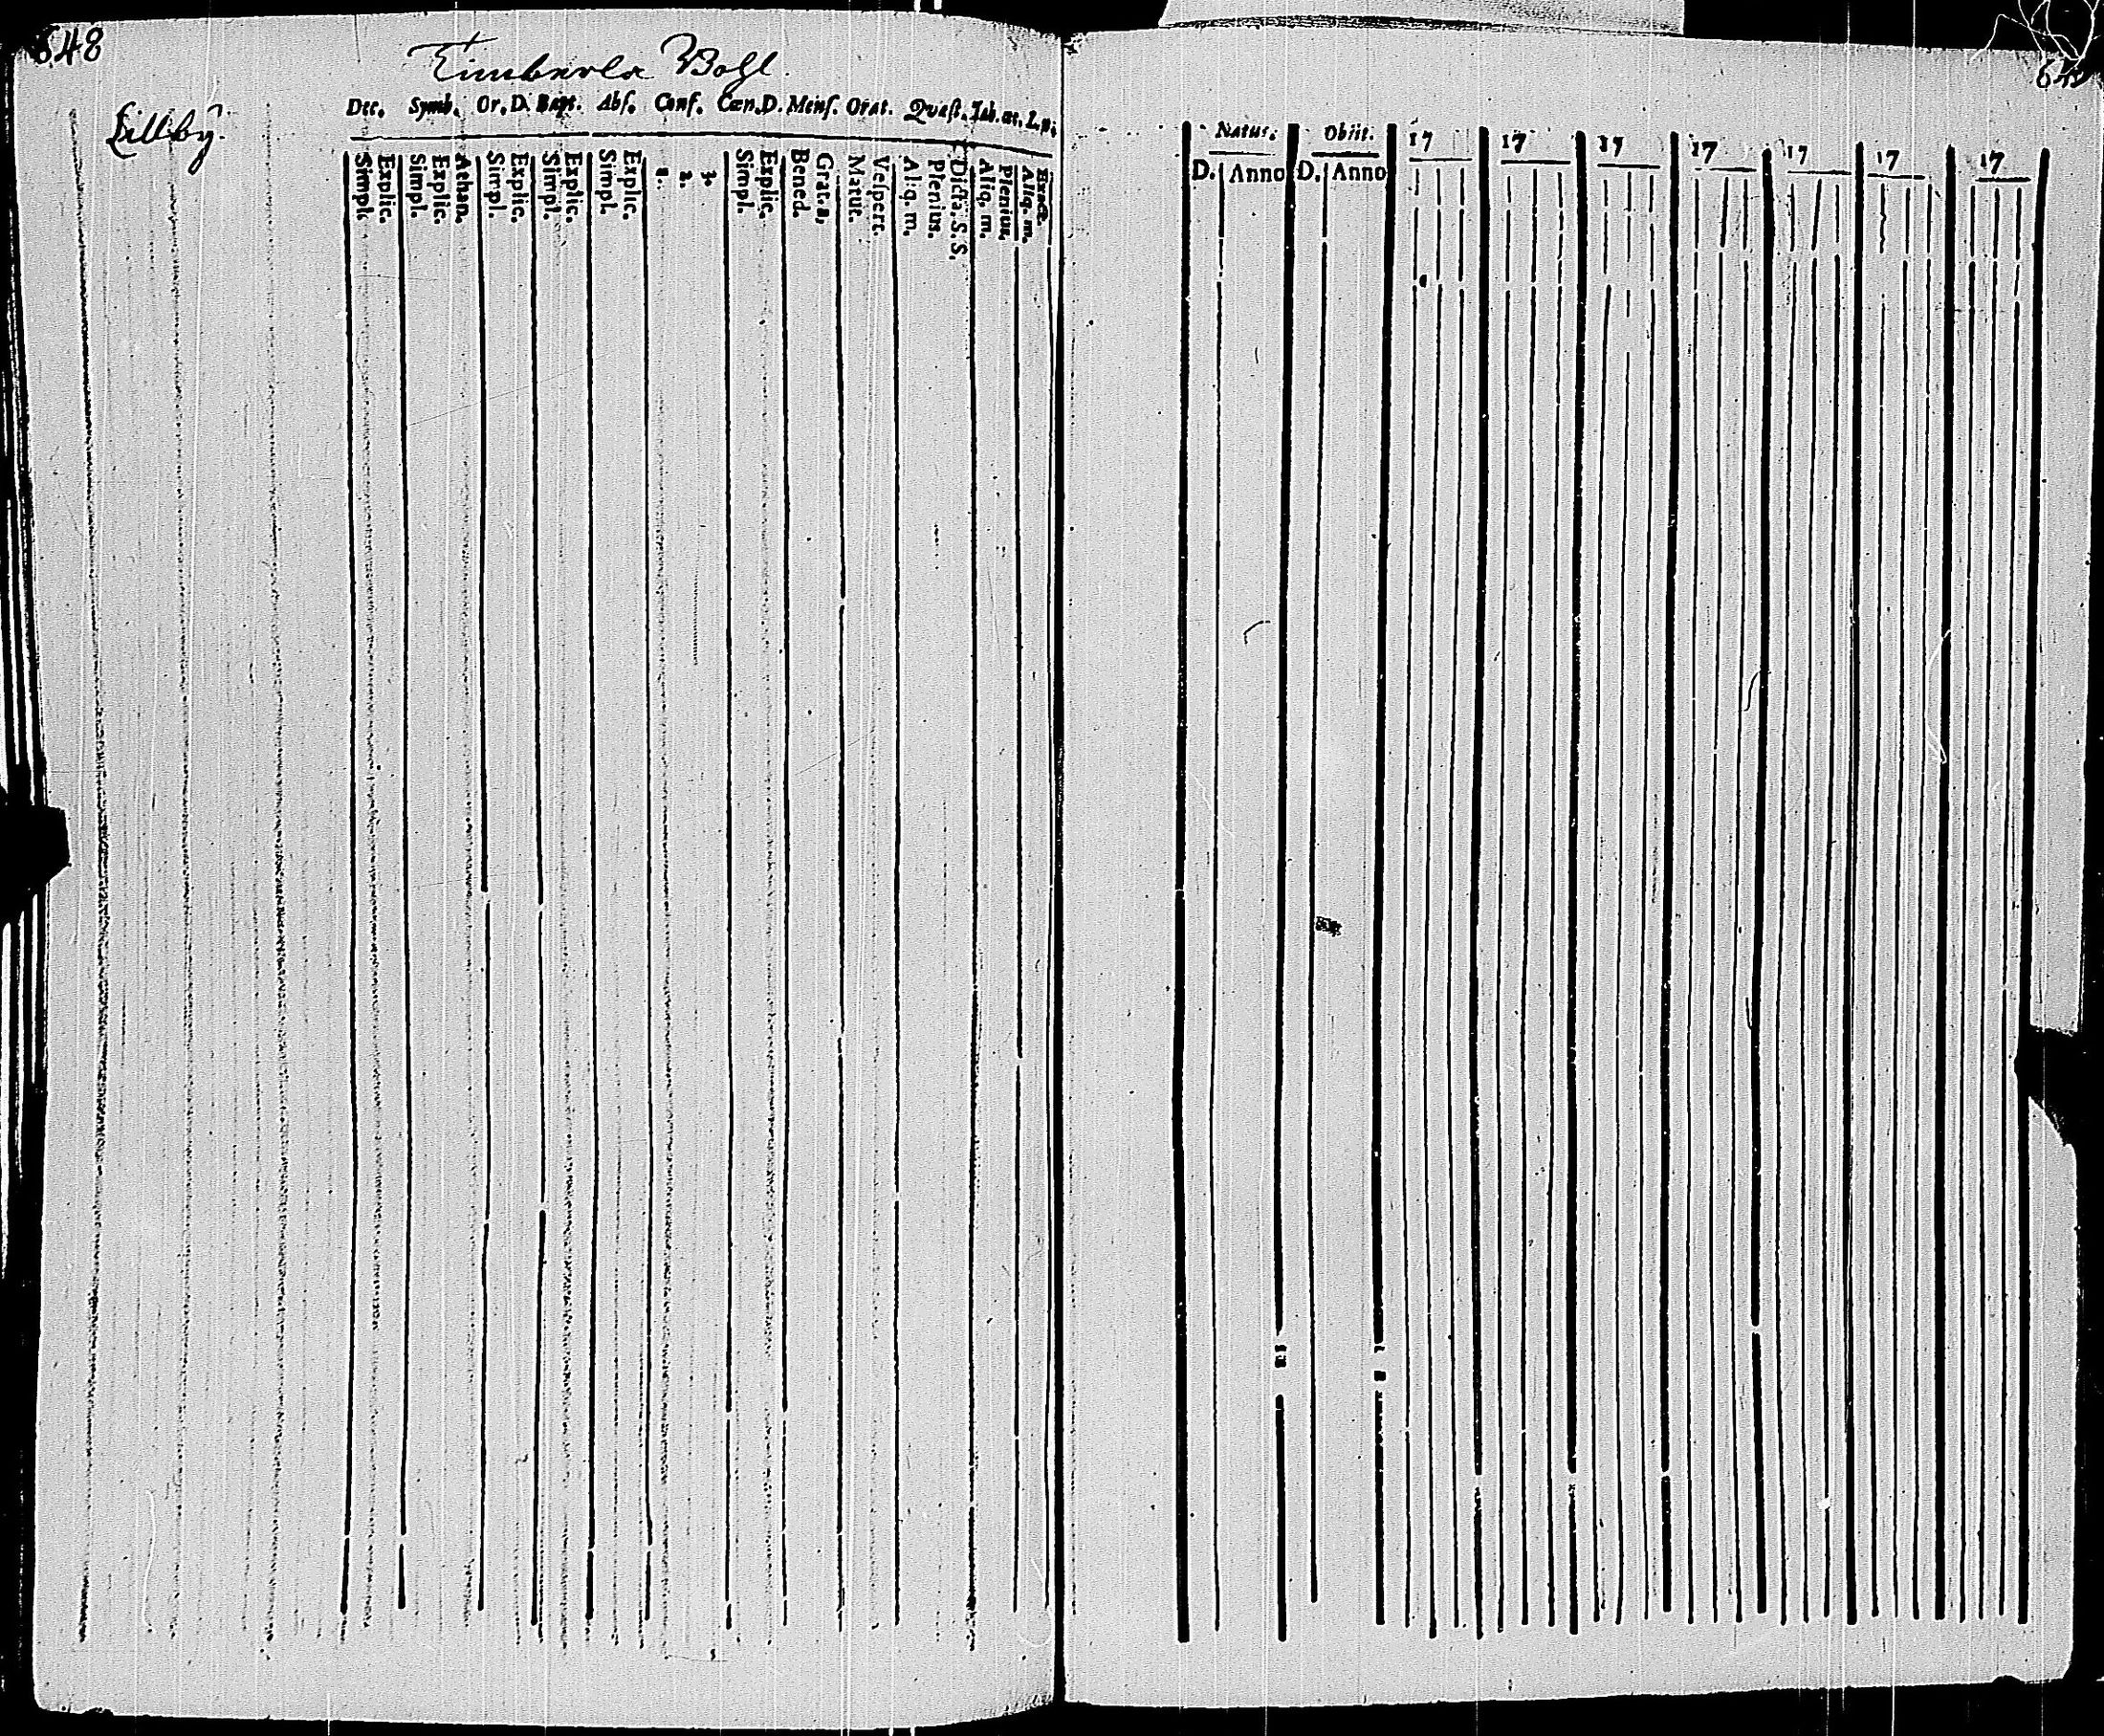 648
Timberla Bohl.
Lillby.
Dec. Symb. Or. D. Bapt. Abſ. Conf. Cœn. D. Menſ. Orat. Quæſt. Tab. œc. L. n.
Simpl. Explic. Simpl. Explic. Athan. Simpl. Explic. Simpl. Explic. Simpl. Explic. 1. 2. 3. Simpl. Explic. Bened. Grat. a. Matut. Veſpert. Aliq. m. Plenius. Dicta. S. S. Aliq. m. Plenius. Aliq. m. Exacte.
Natus. Obiit. 17 17 17 17 17 17 17
D. Anno D. Anno